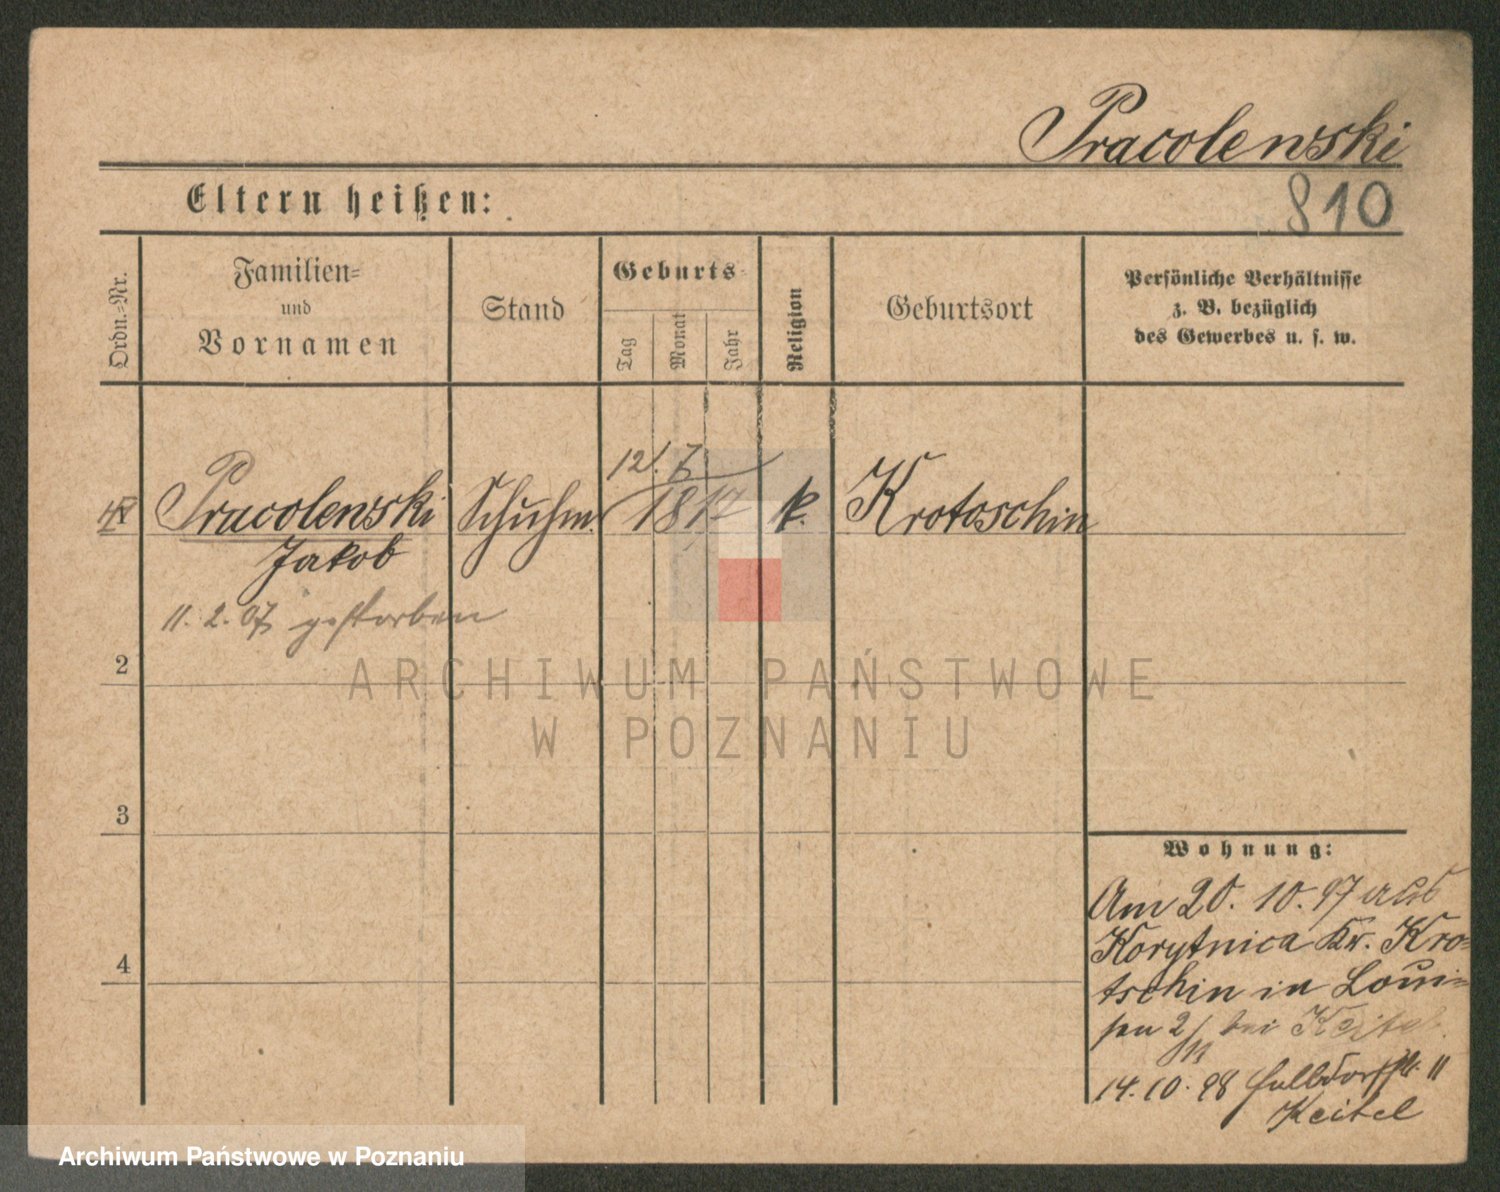 Pracolewski
810
Eltern heißen:
Ordn.=Nr.
Familien=
und
Vornamen
Stand
Geburts=
Tag
Monat
Jahr
Religion
Geburtsort
Persönliche Verhältnisse
z. B. bezüglich
des Gewerbes u. s. w.
12. 7.
Pracolewski Schuhm. 1817 k. Krotoschin
Jakob
11. 2. 07 gestorben
2
3
4
Wohnung:
Am 20. 10. 97 aus
Korytnica Kr. Kro=
tschin in Loui=
sen 2/ bei Keitel
14. 10. 98 11
Keitel
ARCHIWUM PAŃSTWOWE
W POZNANIU
Archiwum Państwowe w Poznaniu